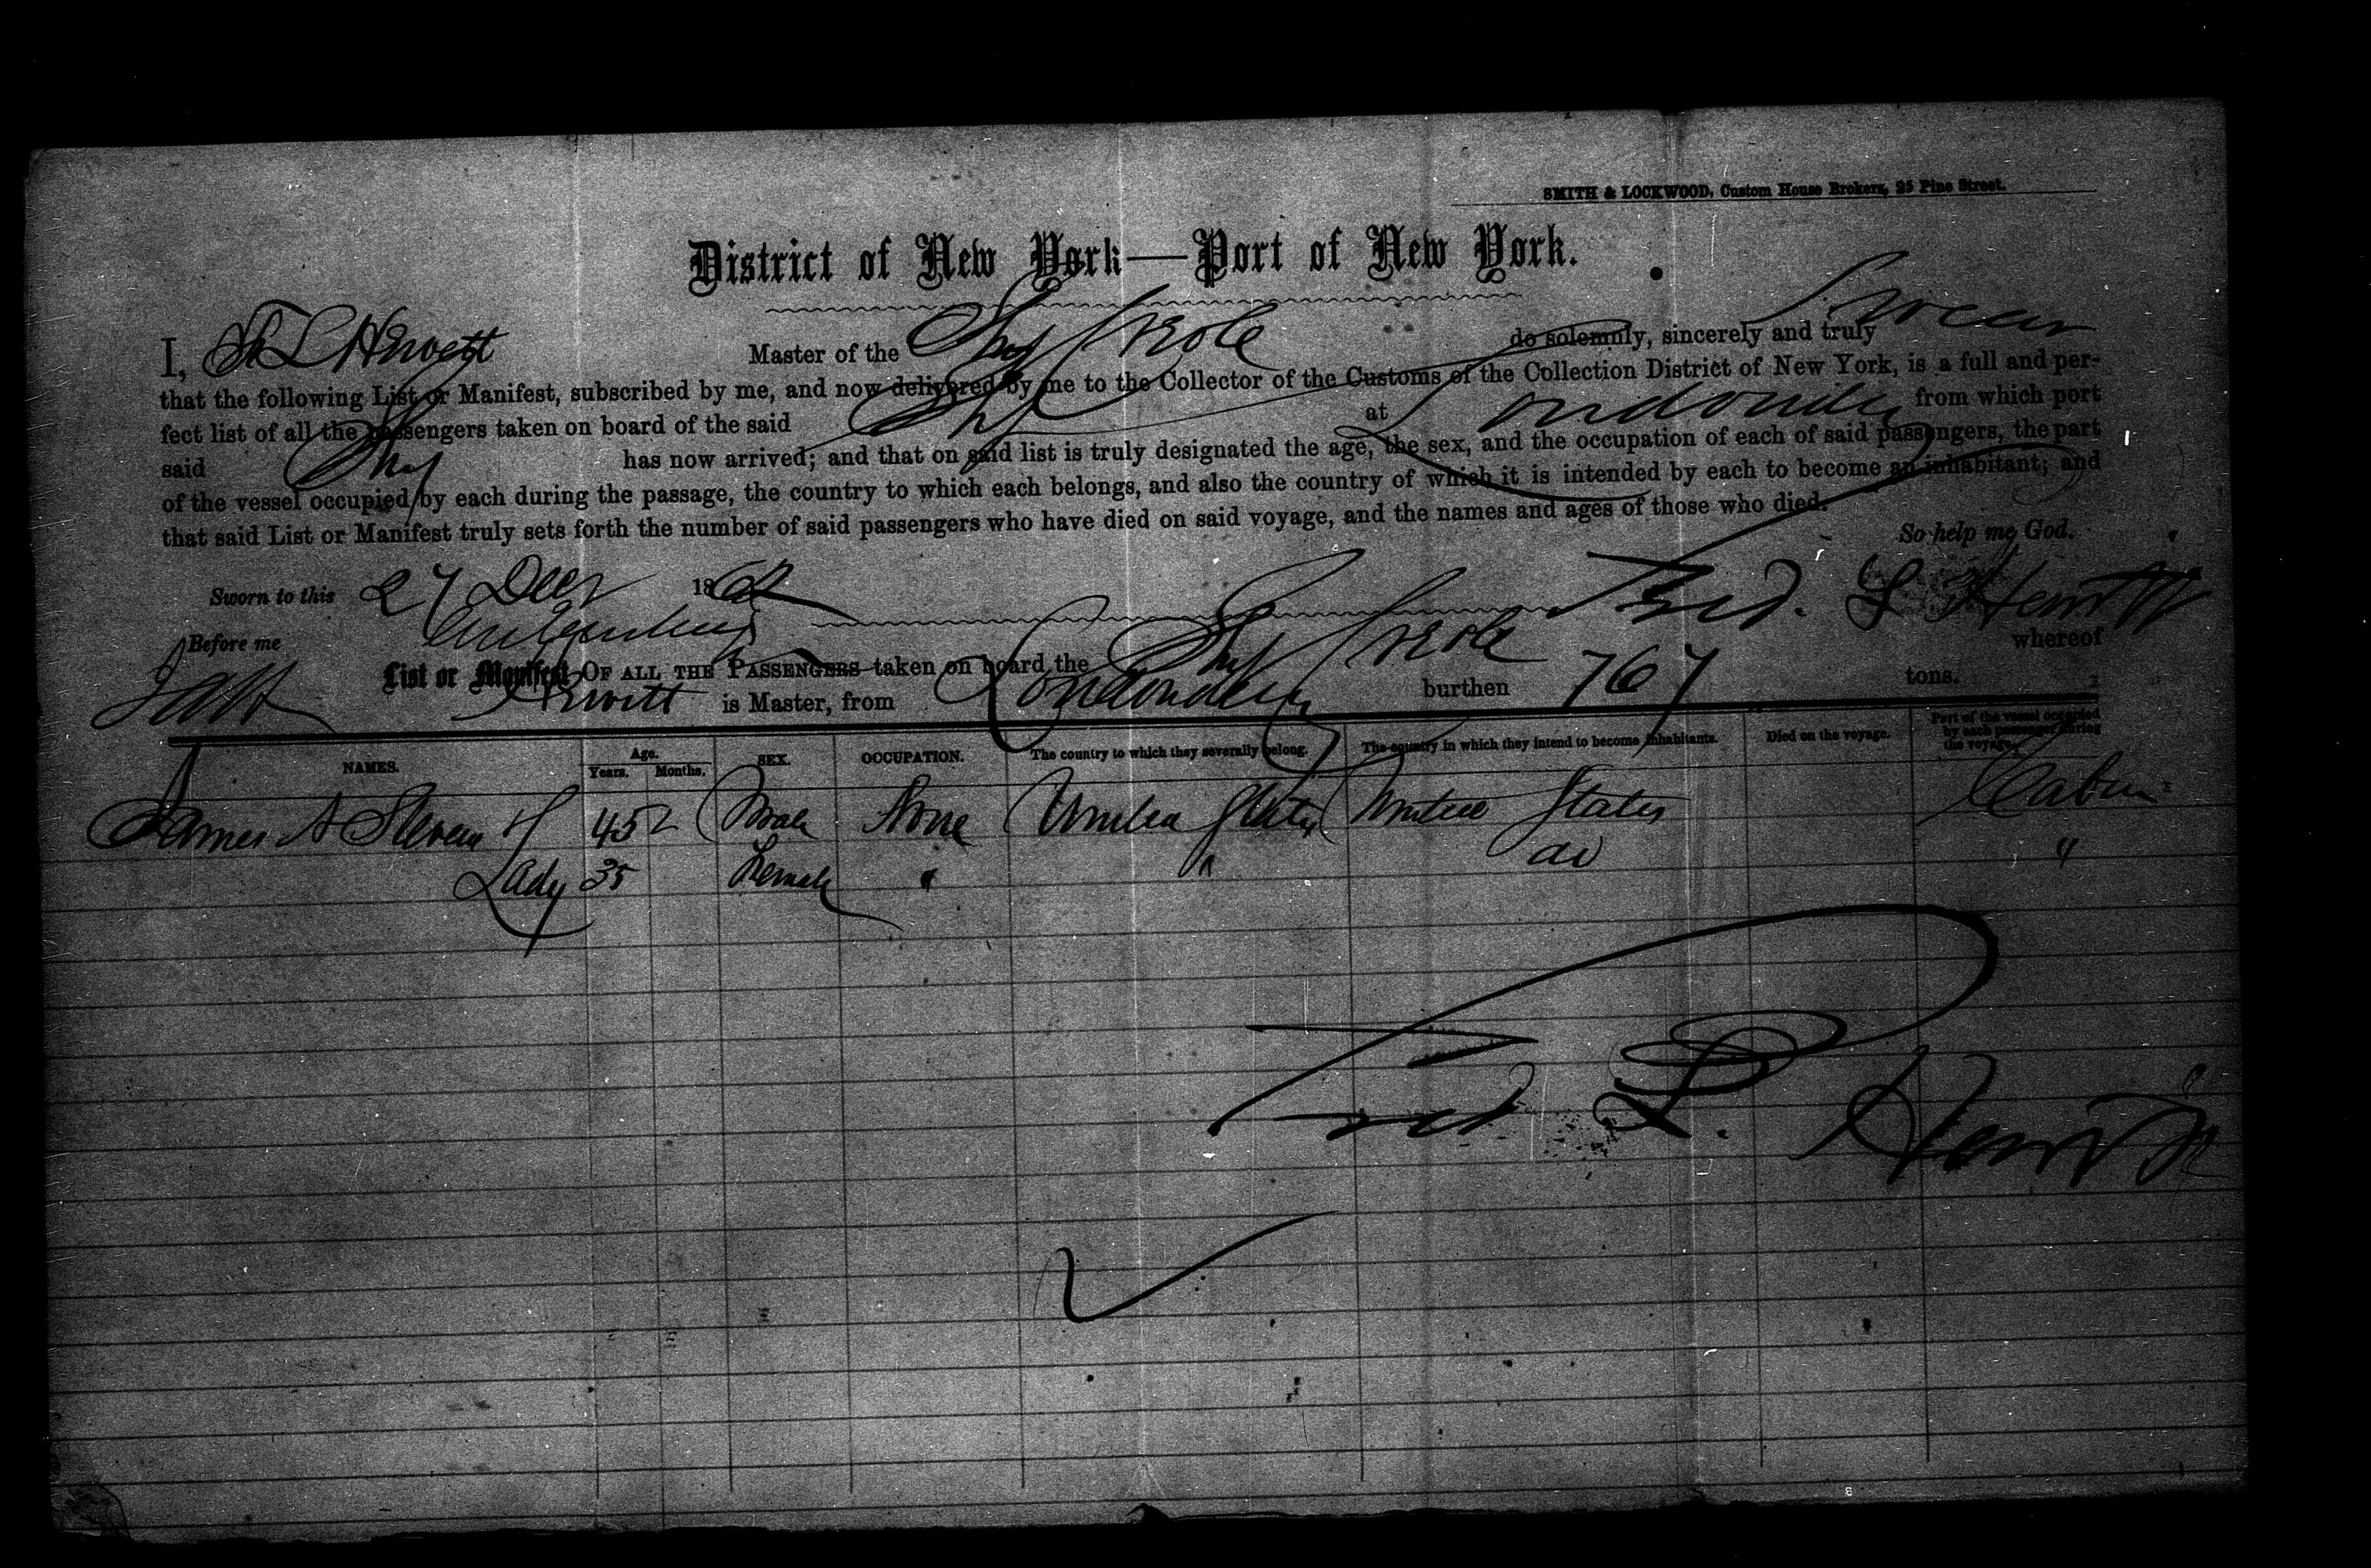 SMITH & LOCKWOOD, Custom House Brokers, 25 Pine Street.
District of New York—Port of New York.
I, F L Hewett Master of the Ship Creole do solemnly, sincerely and truly Swear
that the following List or Manifest, subscribed by me, and now delivered by me to the Collector of the Customs of the Collection District of New York, is a full and per-
fect list of all the passengers taken on board of the said Ship at Londonderry from which port
said Ship has now arrived; and that on said list is truly designated the age, the sex, and the occupation of each of said passengers, the part
of the vessel occupied by each during the passage, the country to which each belongs, and also the country of which it is intended by each to become an inhabitant; and
that said List or Manifest truly sets forth the number of said passengers who have died on said voyage, and the names and ages of those who died.
So help me God.
Sworn to this 27 Decr 1862 Fred. L Hewitt
Before me
List or Manifest OF ALL THE PASSENGERS taken on board the Ship Creole whereof
Hewitt is Master, from Londonderry burthen 767 tons.
NAMES. Age. Years. Months. SEX. OCCUPATION. The country to which they severally belong. The country in which they intend to become inhabitants. Died on the voyage. Part of the vessel occupied by each passenger during the voyage.
James A Steven 45 Male None United States United States Cabin
Lady 35 Female " " do "
Fred L. Hewitt